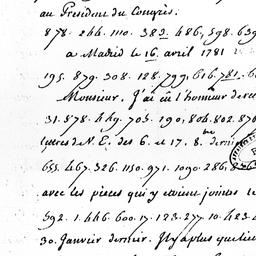 au President du Congrès.
878. 244. 1110. 383. 486, 598. 639
a Madrid le 16. avril 1781
195. 879. 308. 128. 799, 616. 781. 6
Monsieur. J'ai eû l'honneur de rece
31. 878. 449. 705. 190, 804. 802. 870
lettres de V. E. des 6. et 17. 8.bre derni
655. 467. 326. 1150. 971. 1090. 286, 8
avec les pieces qui y etoient jointes le
592. 1. 446. 600. 17. 123. 277. 10. 423. 4
30. Janvier dernier. Il y a plus que